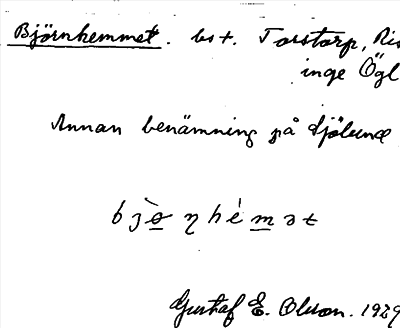 Björnhemmet. bst. Torstorp, Ris
inge Ögl
Annan benämning på Sjölund
Gustaf E. Olsson. 1929